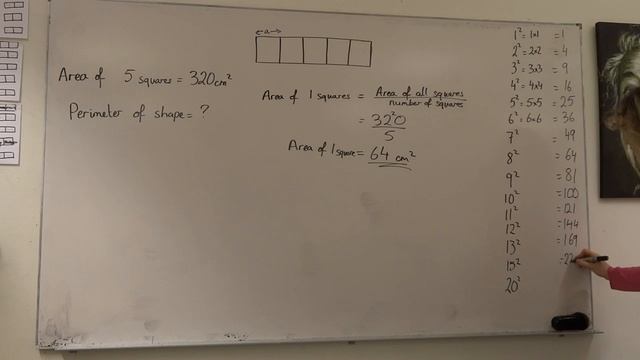 a
Area of 5 squares = 320cm²
Perimeter of shape = ?
Area of 1 squares = Area of all squares
number of squares
= 320
5
Area of 1 square = 64 cm²
1² = 1x1 = 1
2² = 2x2 = 4
3² = 3x3 = 9
4² = 4x4 = 16
5² = 5x5 = 25
6² = 6x6 = 36
7² = 49
8² = 64
9² = 81
10² = 100
11² = 121
12² = 144
13² = 169
15² = 22
20²